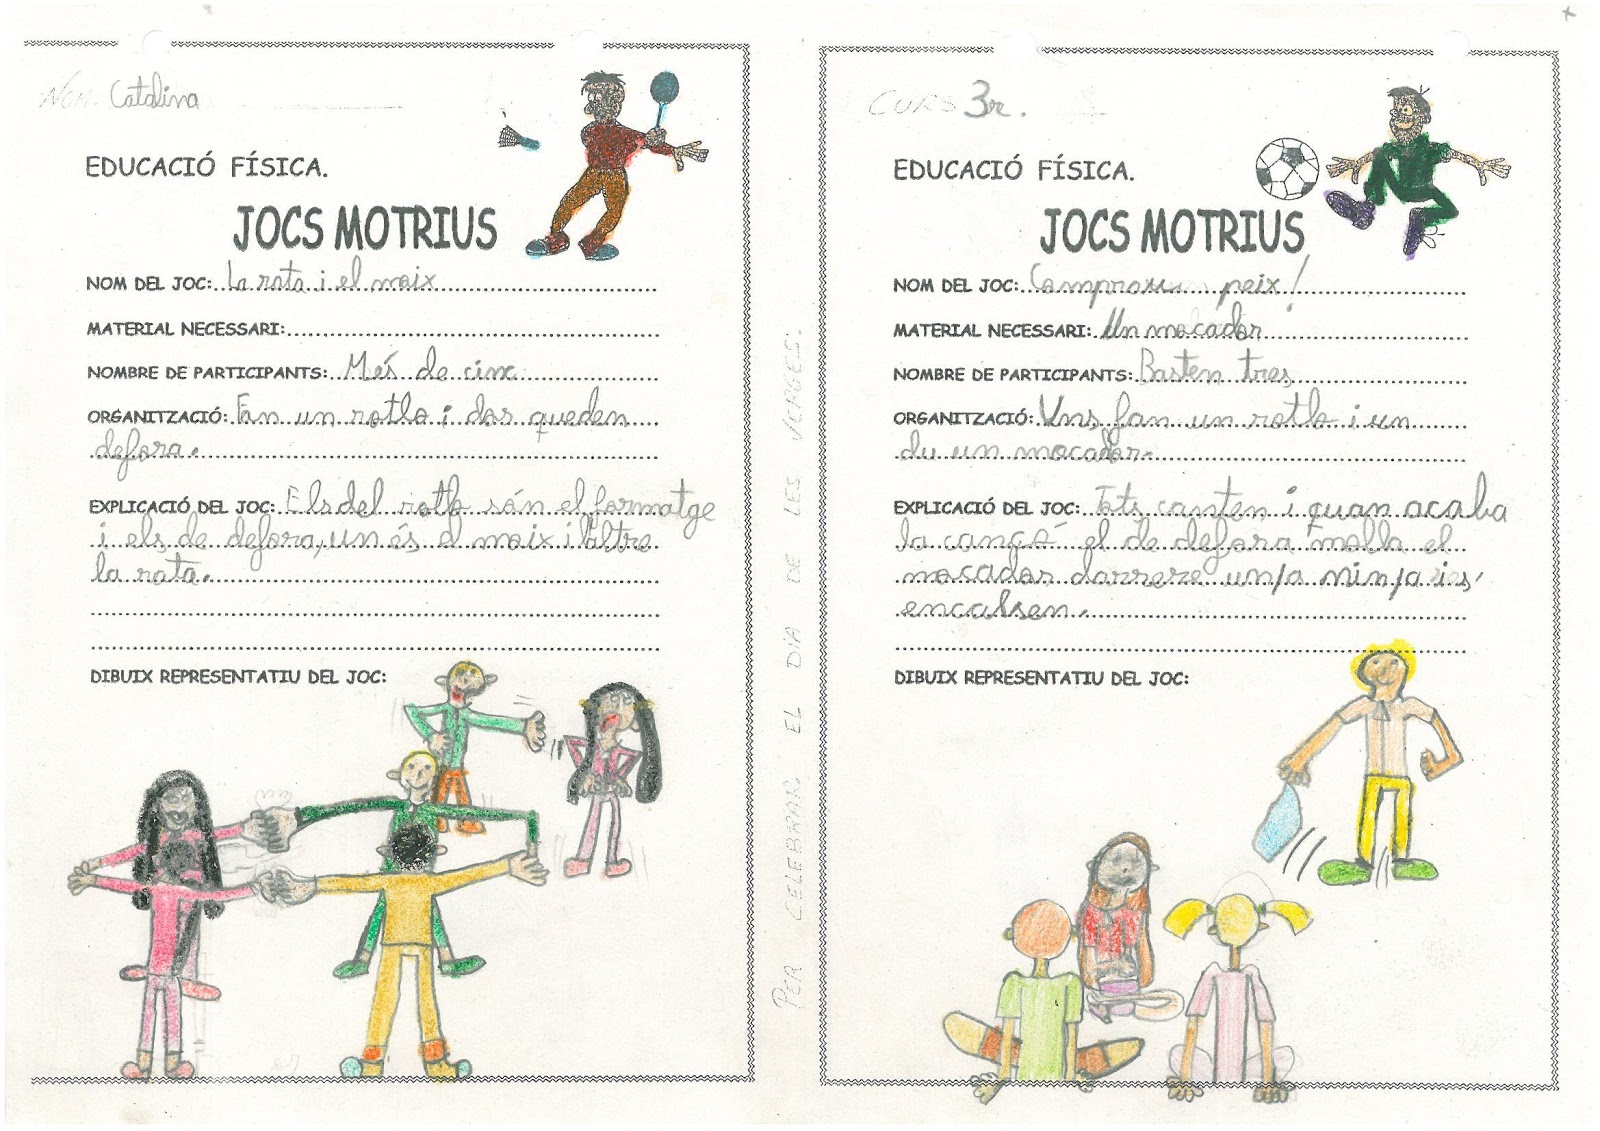 NOM. Catalina
EDUCACIÓ FÍSICA.
JOCS MOTRIUS
NOM DEL JOC: La rata i el moix
MATERIAL NECESSARI:
NOMBRE DE PARTICIPANTS: Més de cinc
ORGANITZACIÓ: Fan un rotlo i dos queden
defora.
EXPLICACIÓ DEL JOC: Els del rotlo són el formatge
i els de defora, un és el moix i l'altre
la rata.
DIBUIX REPRESENTATIU DEL JOC:
PER CELEBRAR EL DIA DE LES VERGES.
CURS 3r.
EDUCACIÓ FÍSICA.
JOCS MOTRIUS
NOM DEL JOC: peix!
MATERIAL NECESSARI: Un mocador
NOMBRE DE PARTICIPANTS: Basten tres
ORGANITZACIÓ: Uns fan un rotlo i un
du un mocador.
EXPLICACIÓ DEL JOC: Tots canten i quan acaba
la cançó el de defora molla el
mocador darrere un/a nin/a i es
encalsen.
DIBUIX REPRESENTATIU DEL JOC: